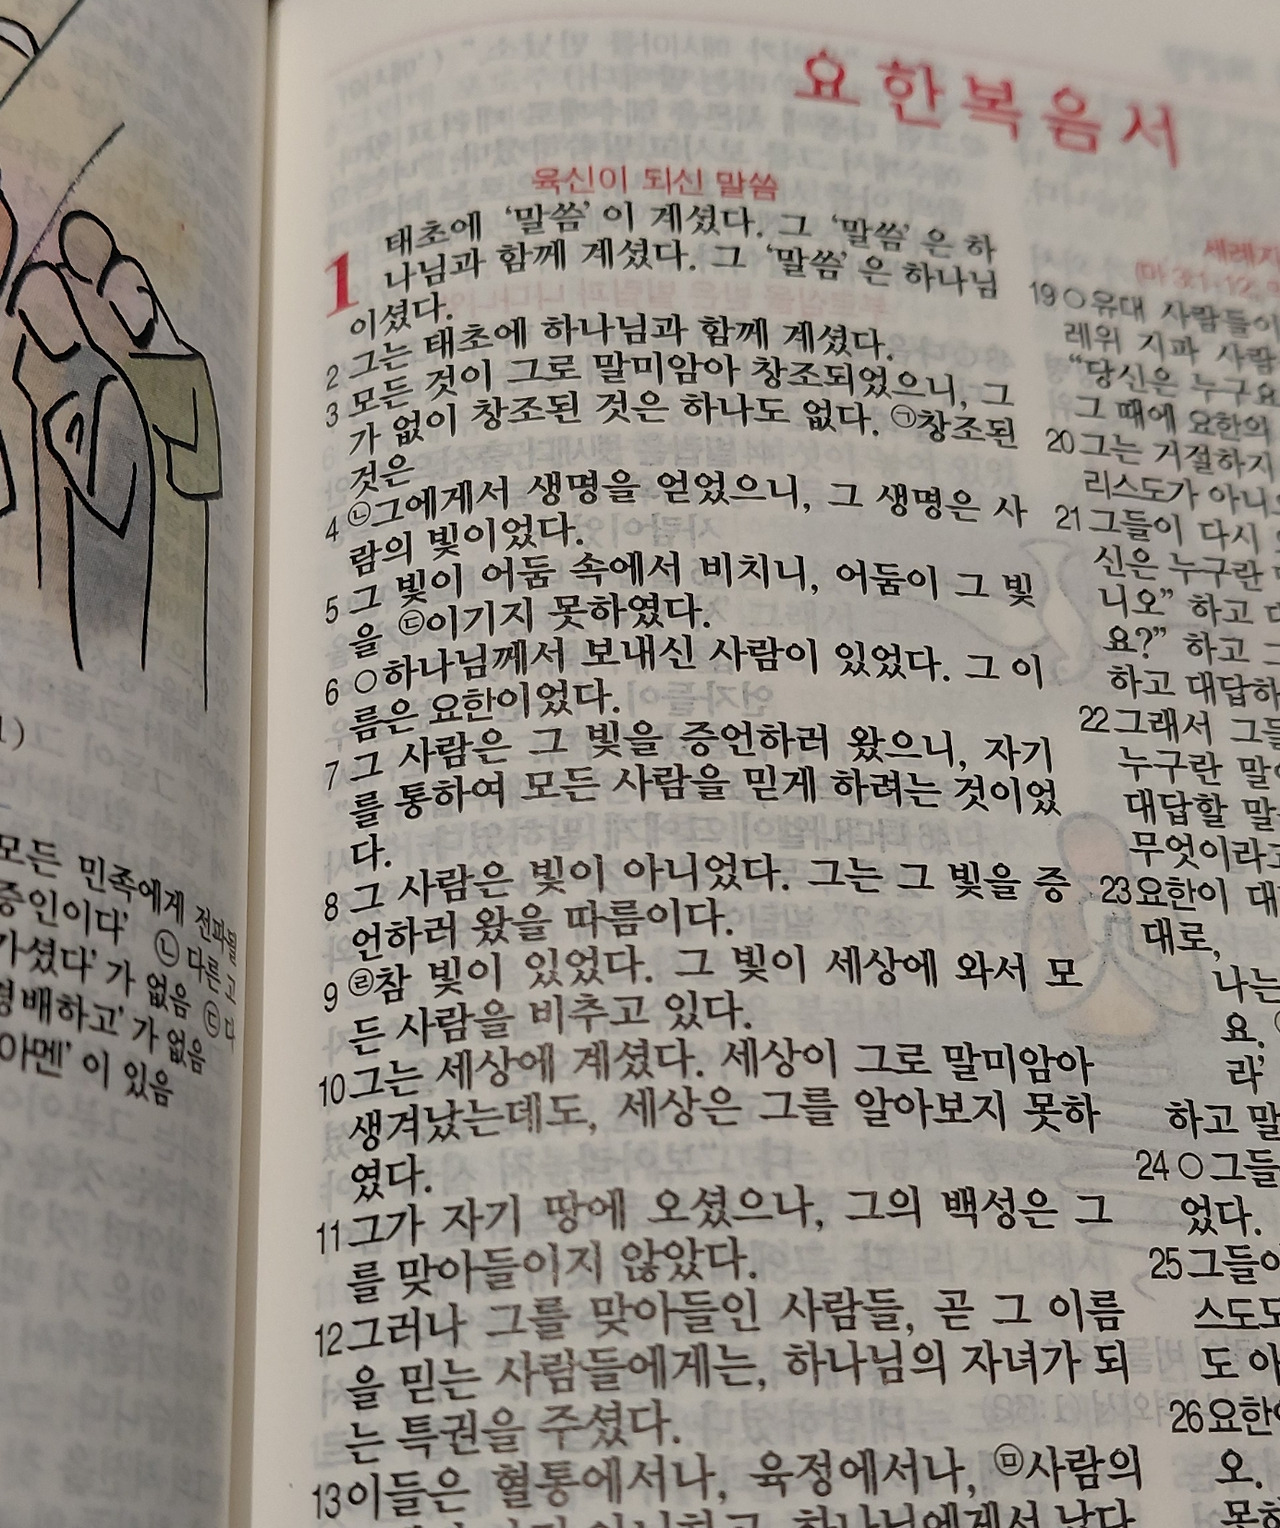 1)
모든 민족에게 전파
증인이다’ ㉡ 다른
가셨다’가 없음 ㉢ 다
형배하고’가 없음
아멘’이 있음
요한복음서
육신이 되신 말씀
1 태초에 ‘말씀’이 계셨다. 그 ‘말씀’은 하
나님과 함께 계셨다. 그 ‘말씀’은 하나님
이셨다.
2 그는 태초에 하나님과 함께 계셨다.
3 모든 것이 그로 말미암아 창조되었으니, 그
가 없이 창조된 것은 하나도 없다. ㉠창조된
것은
4 ㉡그에게서 생명을 얻었으니, 그 생명은 사
람의 빛이었다.
5 그 빛이 어둠 속에서 비치니, 어둠이 그 빛
을 ㉢이기지 못하였다.
6 ○하나님께서 보내신 사람이 있었다. 그 이
름은 요한이었다.
7 그 사람은 그 빛을 증언하러 왔으니, 자기
를 통하여 모든 사람을 믿게 하려는 것이었
다.
8 그 사람은 빛이 아니었다. 그는 그 빛을 증
언하러 왔을 따름이다.
9 ㉣참 빛이 있었다. 그 빛이 세상에 와서 모
든 사람을 비추고 있다.
10 그는 세상에 계셨다. 세상이 그로 말미암아
생겨났는데도, 세상은 그를 알아보지 못하
였다.
11 그가 자기 땅에 오셨으나, 그의 백성은 그
를 맞아들이지 않았다.
12 그러나 그를 맞아들인 사람들, 곧 그 이름
을 믿는 사람들에게는, 하나님의 자녀가 되
는 특권을 주셨다.
13 이들은 혈통에서나, 육정에서나, ㉤사람의
하나님에게서 났다
세례자
(마 3:1-12,
19 ○유대 사람들이
레위 지파 사람
“당신은 누구요
그 때에 요한의
20 그는 거절하지
리스도가 아니
21 그들이 다시
신은 누구란
니오” 하고
요?” 하고 그
하고 대답하
22 그래서 그들
누구란 말
대답할 말
무엇이라고
23 요한이 대
대로,
나는
요.
라’
하고 말
24 ○그들
었다.
25 그들이
스도도
도 아
26 요한이
오.
못하